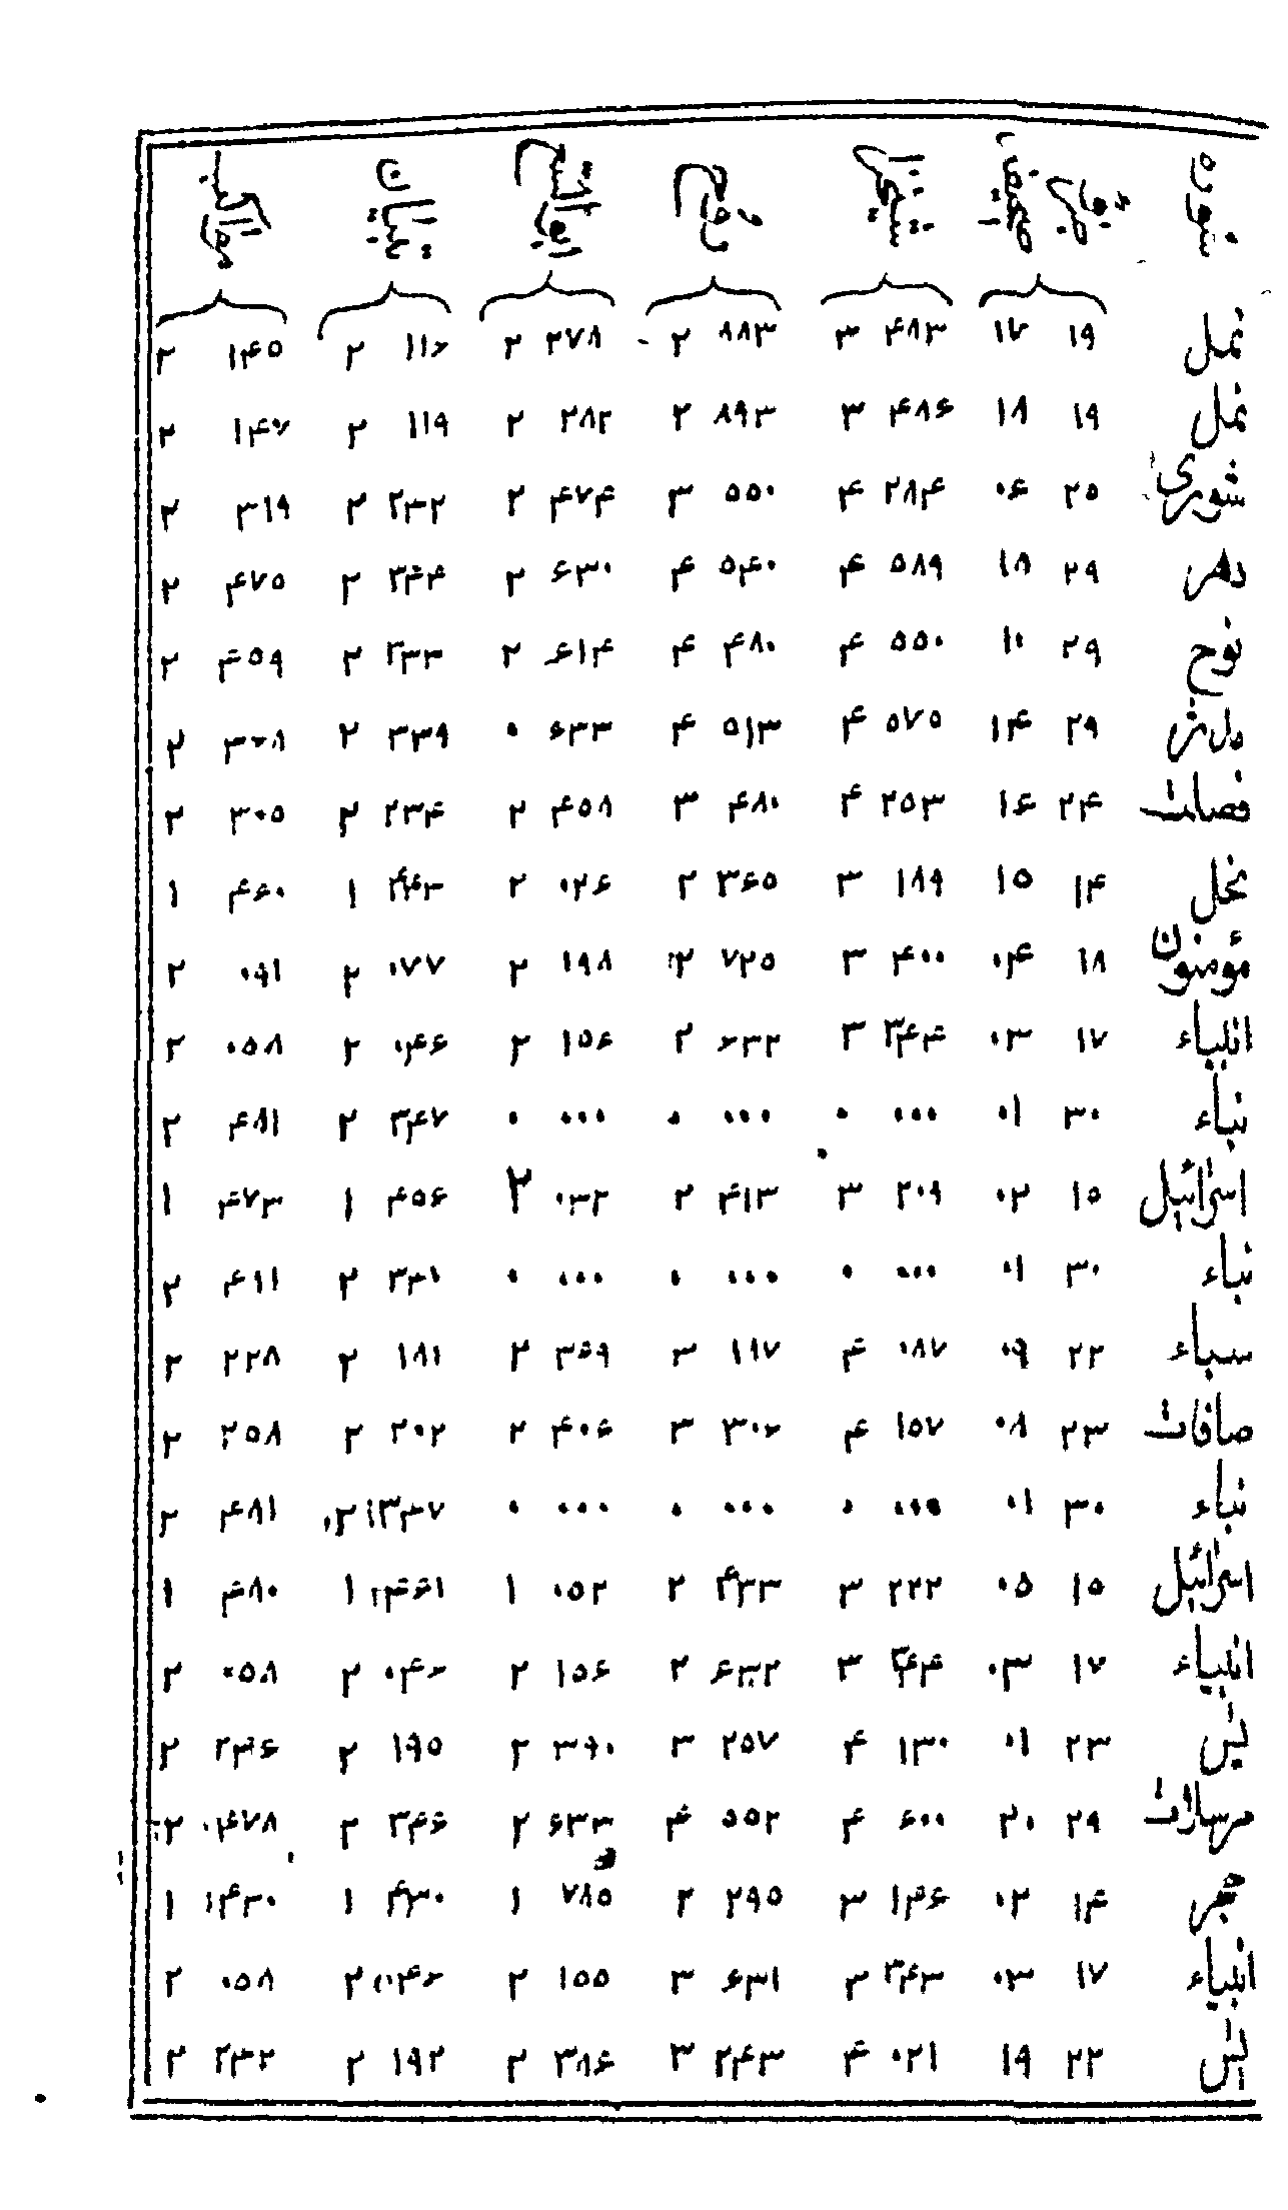 سوره صفحه
نمل ۱۹ ۱۷ ۴۸۳ ۳ ۸۸۳ ۲ ۲۷۸ ۲ ۱۱۶ ۲ ۱۴۵ ۲
نمل ۱۹ ۱۸ ۴۸۶ ۳ ۸۹۳ ۲ ۲۸۲ ۲ ۱۱۹ ۲ ۱۴۷ ۲
شوری ۲۵ ۰۶ ۲۸۴ ۴ ۵۵۰ ۳ ۴۷۴ ۲ ۲۳۲ ۲ ۳۱۹ ۲
دهر ۲۹ ۱۸ ۵۸۹ ۴ ۵۴۰ ۴ ۶۳۰ ۲ ۳۴۴ ۲ ۴۷۵ ۲
نوح ۲۹ ۱۰ ۵۵۰ ۴ ۴۸۰ ۴ ۶۱۴ ۲ ۳۳۳ ۲ ۴۵۹ ۲
۲۹ ۱۴ ۵۷۵ ۴ ۵۱۳ ۴ ۶۳۳ ۰ ۳۳۹ ۲ ۲
فصلت ۲۴ ۱۶ ۲۵۳ ۴ ۴۸۰ ۳ ۴۵۸ ۲ ۲۳۴ ۲ ۳۰۵ ۲
نحل ۱۴ ۱۵ ۱۸۹ ۳ ۳۶۵ ۲ ۰۲۶ ۲ ۱ ۴۶۰ ۱
مؤمنون ۱۸ ۰۴ ۴۰۰ ۳ ۷۲۵ ۲ ۱۹۸ ۲ ۰۷۷ ۲ ۰۹۱ ۲
انبیاء ۱۷ ۰۳ ۳۴۴ ۳ ۶۳۲ ۲ ۱۵۶ ۲ ۰۴۶ ۲ ۰۵۸ ۲
نباء ۳۰ ۰۱ ۰۰۰ ۰ ۰۰۰ ۰ ۰۰۰ ۰ ۳۴۷ ۲ ۴۸۱ ۲
اسرائیل ۱۵ ۰۲ ۲۰۹ ۳ ۴۱۳ ۲ ۰۳۲ ۲ ۴۵۶ ۱ ۴۷۳ ۱
نباء ۳۰ ۰۱ ۰۰۰ ۰ ۰۰۰ ۰ ۰۰۰ ۰ ۲ ۴۱۱ ۲
سباء ۲۲ ۰۹ ۰۸۷ ۴ ۱۱۷ ۳ ۳۶۹ ۲ ۱۸۱ ۲ ۲۲۸ ۲
صافات ۲۳ ۰۸ ۱۵۷ ۴ ۳۰۶ ۳ ۴۰۶ ۲ ۲۰۲ ۲ ۲۵۸ ۲
نباء ۳۰ ۰۱ ۰۰۰ ۰ ۰۰۰ ۰ ۰۰۰ ۰ ۲ ۴۸۱ ۲
اسرائیل ۱۵ ۰۵ ۲۲۲ ۳ ۴۳۳ ۲ ۰۵۲ ۱ ۴۶۱ ۱ ۴۸۰ ۱
انبیاء ۱۷ ۰۳ ۳۴۴ ۳ ۶۳۲ ۲ ۱۵۶ ۲ ۰۴۶ ۲ ۰۵۸ ۲
یس ۲۳ ۰۱ ۱۳۰ ۴ ۲۵۷ ۳ ۳۹۰ ۲ ۱۹۵ ۲ ۲
مرسلات ۲۹ ۲۰ ۶۰۰ ۴ ۵۵۲ ۴ ۶۳۳ ۲ ۳۴۶ ۲ ۴۷۸ ۲
حجر ۱۴ ۰۲ ۱۴۶ ۳ ۲۹۵ ۲ ۷۸۵ ۱ ۴۳۰ ۱ ۴۳۰ ۱
انبیاء ۱۷ ۰۳ ۳۴۳ ۳ ۶۳۱ ۳ ۱۵۵ ۲ ۰۴۶ ۲ ۰۵۸ ۲
یس ۲۲ ۱۹ ۰۲۱ ۴ ۲۴۳ ۳ ۳۸۶ ۲ ۱۹۲ ۲ ۲۳۲ ۲